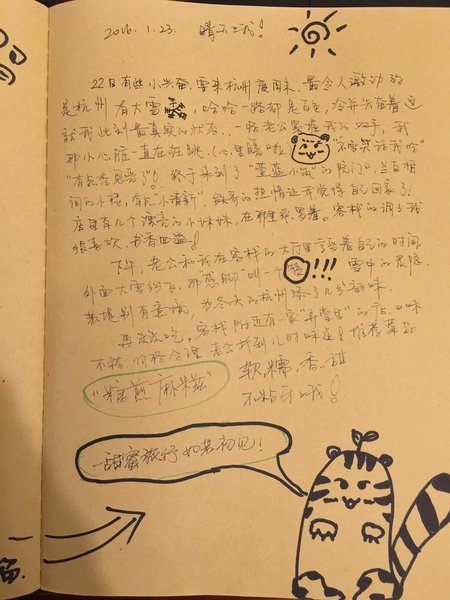 2016.1.23. 晴天
22日有些小兴奋,要来杭州度周末,最令人激动的
是杭州有大雪,哈哈一路都是白色,冷并兴奋着这
就我此刻最真实的状态,一路老公紧握我的双手,我
那小心脏一直在狂跳,(心里暗啦 "不完美活我哈"
"有点看见要了"! 终于来到了"萱蓝小筑"的院门口,兰白相
间的小楼,有点"小清新",的热情让我觉得自己回家了!
店里有几个漂亮的小妹妹,在那里坐着。客栈的调调我
很喜欢,书香四溢!
下午,老公和我在客栈的大厅里享受着自己的时间
外面大雪纷飞,那感脚"叫一个 !!! 雪中的灵隐
别有意境,为冬天的杭州添了几分韵味
再说说吃,客栈附近有一家"弄堂里"的店。口味
不错,价格合理,老公找到儿时味道!推荐菜品
"糖煎麻糍" 软糯,香,甜
不粘牙哦!
甜蜜旅行如若初见!